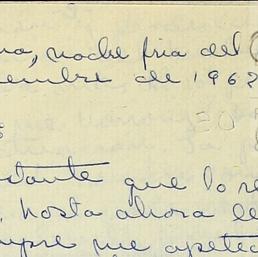 na, noche fria del
embre de 1968
stante que lo re
. hasta ahora le
mpre me apetec